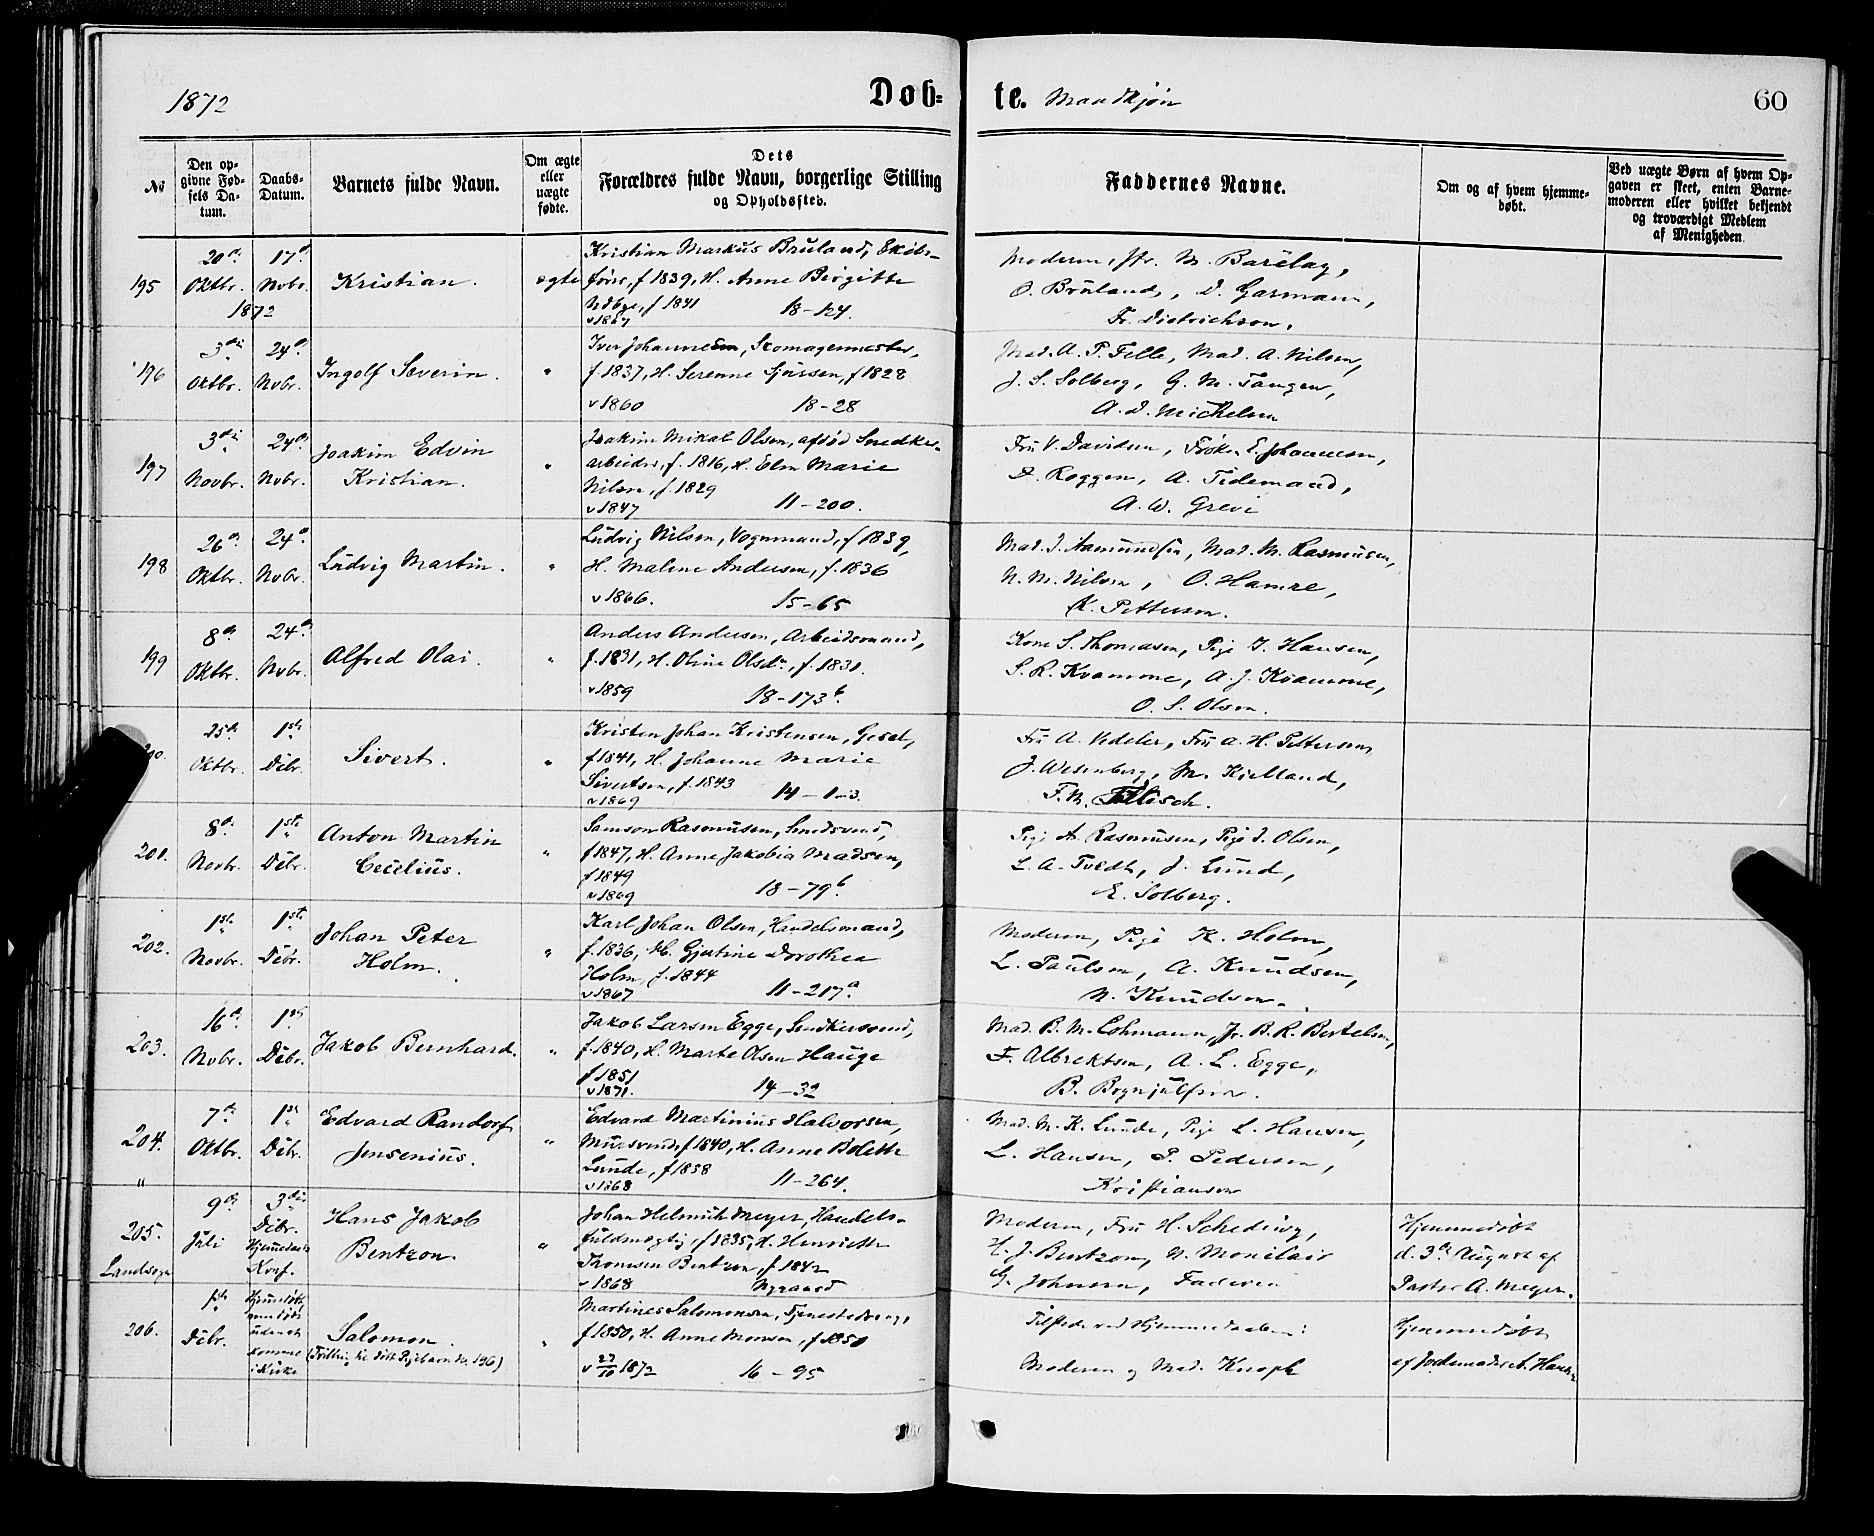 1872
Døb=
te. Mandkjøn
60
No
Den op-
givne Fød-
sels Da-
tum.
Daabs-
Datum.
Barnets fulde Navn.
Om ægte
eller
uægte
fødte.
Dets
Forældres fulde Navn, borgerlige Stilling
og Opholdssted.
Faddernes Navne.
Om og af hvem hjemme-
døbt.
Ved uægte Børn af hvem Op-
gaven er skeet, enten Barne-
moderen eller hvilket bekjendt
og troværdigt Medlem
af Menigheden.
195
20de
Oktbr.
1872
17de
Novbr.
Kristian.
ægte
Kristian Markus Bruland, Exible-
fører, f 1839, H. Anne Birgitte
f 1841
v 1867 18-124.
Moderen, M. Barclay,
O. Bruland, D. Garmann,
Fr. Dietrichson.
196
3die
Oktbr.
24de
Novbr.
Ingolf Severin.
"
Iver Johannesen, Skomagermester,
f 1837, H. Serenne f 1828
v 1860 18-28
Mad. A. P. Felle, Mad. A. Nilsen,
J. S. Solberg, G. M. Tangen,
A. D. Michelsen
197
3die
Novbr.
24de
Nvbr.
Joakim Edvin
Kristian.
"
Joakim Mikal Olsen, afdød Snedker-
arbeider, f. 1816, H. Elen Marie
Nilsen, f. 1829
v 1847 11-200.
Fru V. Davidsen, Frøken E. Johannesen,
D. Roggen, A. Tidemand,
A. W. Greve
198
26de
Oktbr.
24de
Nvbr.
Ludvig Martin.
"
Ludvig Nilsen, Vognmand, f 1839,
H. Malene Andersen, f. 1836
v 1866. 15-65
Mad. J. Aamundsen, Mad. M. Rasmusen,
N. M. Nilsen, O. Hamre,
K. Pettersen.
199
8de
Oktbr.
24de
Nvbr.
Alfred Olai.
"
Anders Andersen, Arbeidsmand,
f. 1831, H. Oline Olsdr., f. 1831.
v 1859 18-173b.
Kone S. Thomasen, Pige J. Hansen,
S. R. Kvamme, A. J. Kvamme,
O. S. Olsen.
25de
Oktbr.
1ste
Debr.
Sivert.
"
Kristen Johan Kristensen, Gesel,
f 1841, H. Johanne Marie
Sivertsen, f. 1843
v 1869 14-1-3.
Fru A. Vedeler, Fru A. H. Pettersen,
J. Wesenberg, M. Kielland,
201.
8de
Novbr.
1ste
Debr.
Anton Martin
Cecelius.
"
Samson Rasmusen, Smedsvend,
f 1847, H. Anne Jakobia Madsen,
f 1849
v 1869 18-79b
Pige A. Rasmusen, Pige J. Olsen,
L. A. Tvedt, J. Lund,
E. Solberg.
202.
1ste
Novbr.
1ste
Debr.
Johan Peter
Holm.
"
Karl Johan Olsen, Handelsmand,
f. 1836, H. Gjertine Dorothea
Holm, f. 1844
v 1867 11-217a.
Moderen, Pige K. Holm,
L. Paulsen, A. Knudsen,
N. Knudsen.
203.
16de
Nvbr.
1ste
Debr.
Jakob Bernhard.
"
Jakob Larsen Egge, Snedkersvend,
f. 1840, H. Marte Olsen Hauge
f 1851
v 1871. 14-32
Mad. B. M. Lohmann, Jr. B. R. Bertelsen,
F. Albrektsen, A. L. Egge,
B. Brynjulfsen.
204.
"
7de
Oktbr.
1ste
Debr.
Edvard Randorf
Jensenius.
"
Edvard Martinius Halvorsen,
Mursvend, f 1840, H. Anne Bolethe
Lunde, f 1838
v 1868 11-264.
Mad. M. K. Lunde, Pige L. Hansen,
L. Hansen, P. Pedersen,
Kristiansen
205.
Landsogn
9de
Juli
3die
Debr.
Hjemmedaab
Konf.
Hans Jakob
Bentzon.
"
Johan Helmich Meyer, Handels-
fuldmægtig, f 1835, H. Henriette
Thomsen Bentzon, f 1842
v 1868 Nygaard
Moderen, Fru H. Scheding,
H. J. Bentzon, N. Monclair
G. Johnsen, Faderen
Hjemmedøbt
d. 3de August af
Pastor A. Meyer.
206.
1ste
Debr.
Hjemmedøbt,
uden at
komme
i Kirke
Salomon.
(Tvilling til dødt Pigebarn No. 196)
"
Martines Salomonsen, Tjenestedreng,
f 1850, H. Anne Monsen, f 1850
v 27/10 1872 16-95
Tilstede ved Hjemmedaaben:
Moderen og Mad. Knoph
Hjemmedøbt
af Jordemoder A. Hansen